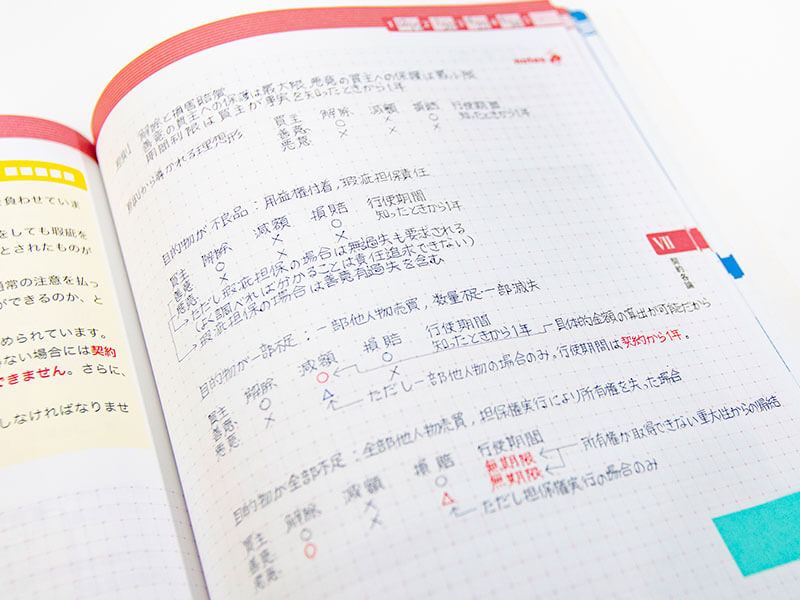 を負わせていま
をしても瑕疵を
とされたものが
通常の注意を払っ
ができるのか、と
められています。
ない場合には契約
できません。さらに、
しなければなりませ
解除と損害賠償
善意の買主への保護は最大限,悪意の買主への保護は最小限
期間制限は買主が事実を知ったときから1年
から導かれる理想形
買主 解除 減額 損賠 行使期間
善意 ○ × ○ 知ったときから1年
悪意 × × ×
目的物が不良品:用益権付着,瑕疵担保責任
買主 解除 減額 損賠 行使期間
善意 ○ × ○ 知ったときから1年
悪意 × × ×
ただし瑕疵担保の場合は無過失も要求される
(よく調べれば分かることは責任追求できない)
瑕疵担保の場合は善意有過失を含む
目的物が一部不足:一部他人物売買,数量不足・一部滅失
買主 解除 減額 損賠 行使期間
善意 ○ ○ ○ 知ったときから1年
具体的金額の算出が可能だから
悪意 × △ ×
ただし一部他人物の場合のみ。行使期間は契約から1年。
目的物が全部不足:全部他人物売買,担保権実行により所有権を失った場合
買主 解除 減額 損賠 行使期間
善意 ○ × ○ 無期限
悪意 ○ × △ 無期限
所有権が取得できない重大性からの帰結
ただし担保権実行の場合のみ
VII
契約各論